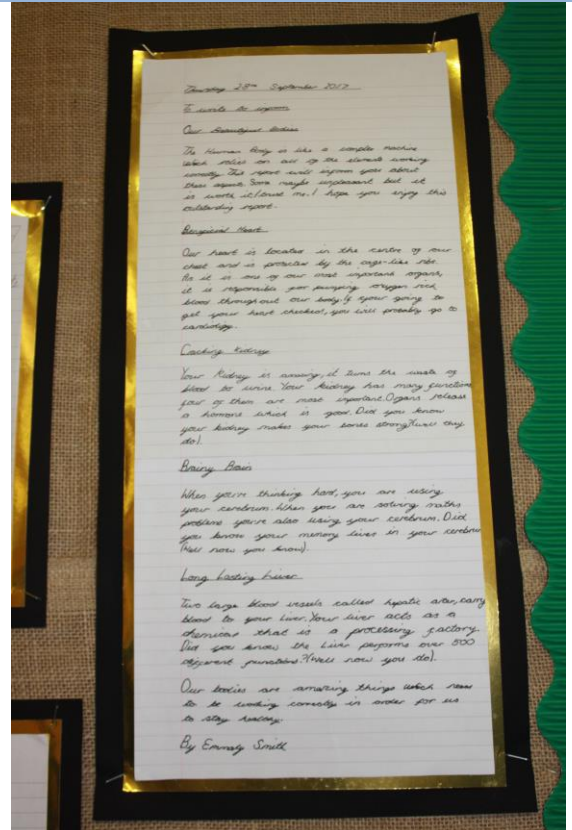 Thursday 28th September 2017
To write to inform
Our Beautiful Bodies
The Human Body is like a complex machine
which relies on all of the elements working
correctly. This report will inform you about
these aspects. Some maybe unpleasant but it
is worth it (trust me). I hope you enjoy this
outstanding report.
Beneficial Heart
Our heart is located in the centre of our
chest and is protected by the cage-like ribs.
As it is one of our most important organs,
it is responsible for pumping oxygen rich
blood throughout our body. If your going to
get your heart checked, you will probably go to
cardiology.
Kidney
Your Kidney is amazing, it turns the waste of
blood to urine. Your kidney has many functions
four of them are most important. Organs release
a hormone which is good. Did you know
your kidney makes your bones strong? (well they
do).
Brainy Brain
When you're thinking hard, you are using
your cerebrum. When you are solving maths
problems you're also using your cerebrum. Did
you know your memory lives in your cerebrum
(Well now you know).
Long Lasting Liver
Two large blood vessels called hepatic carry
blood to your liver. Your liver acts as a
chemical that is a processing factory.
Did you know the Liver performs over 500
different functions? (well now you do).
Our bodies are amazing things which need
to be working correctly in order for us
to stay healthy.
By Smith